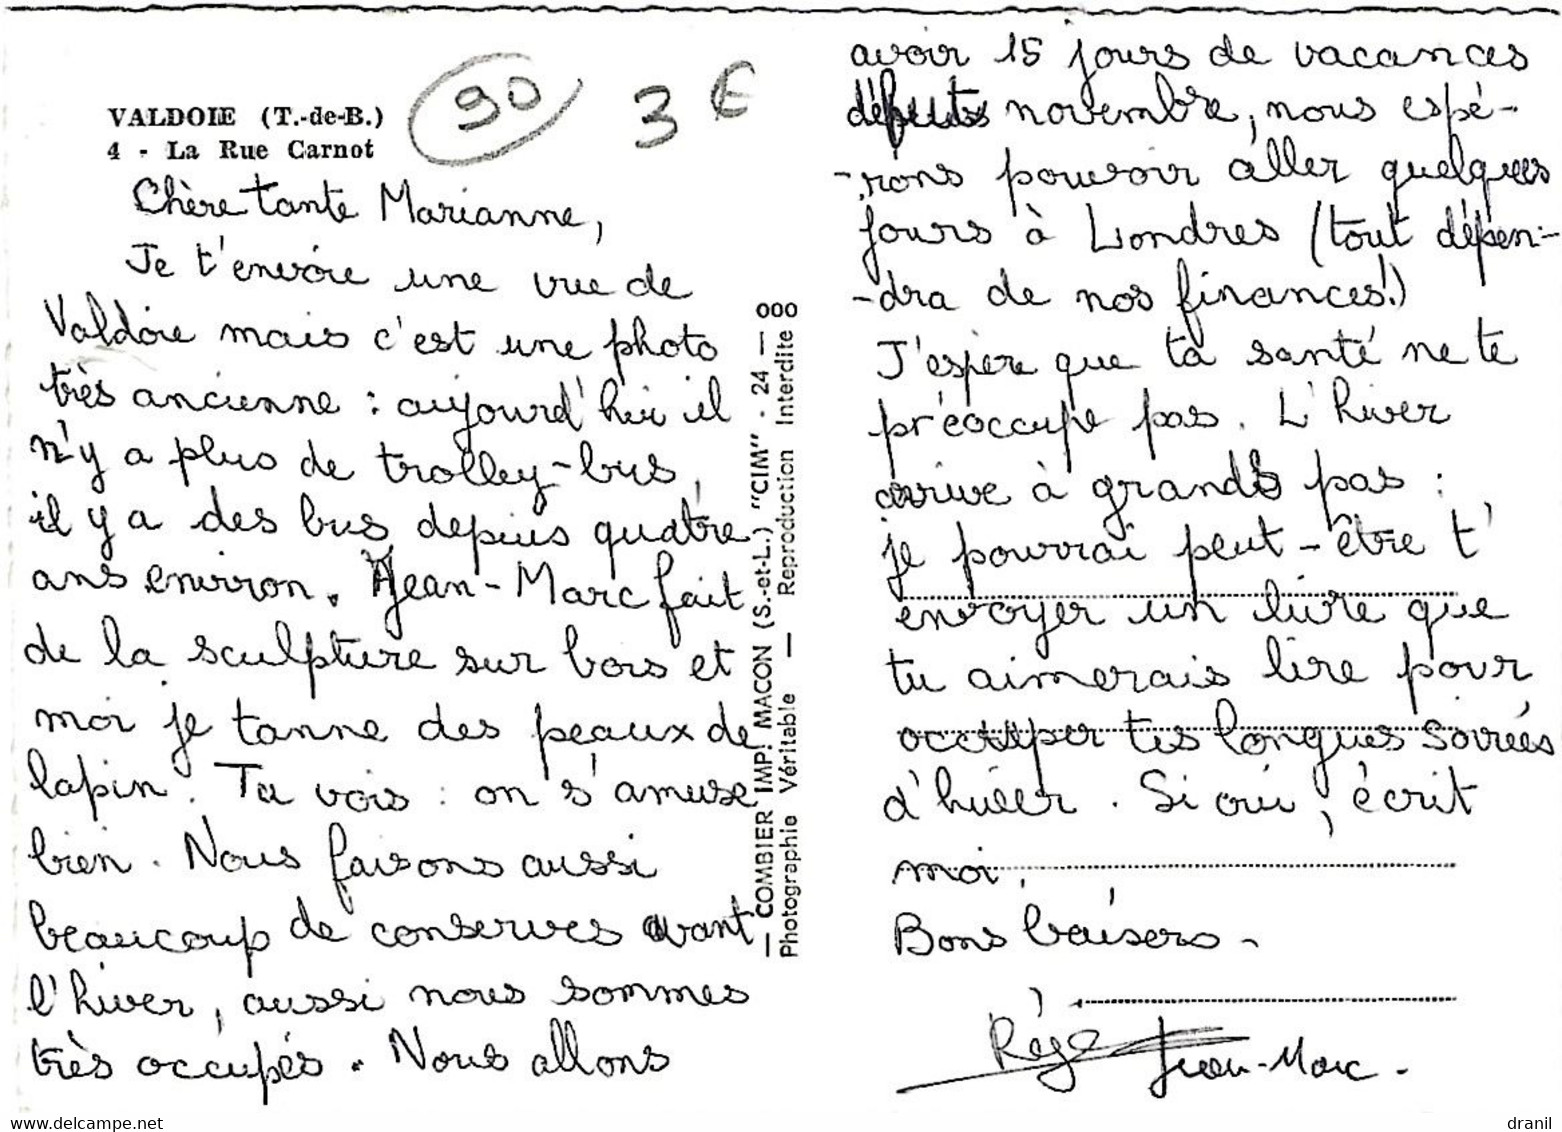 VALDOIE (T.-de-B.)
4 - La Rue Carnot
90
3 €
Chère tante Marianne,
Je t'envoie une vue de
Valdoie mais c'est une photo
très ancienne : aujourd'hui il
n'y a plus de trolley-bus,
il y a des bus depuis quatre
ans environ. Jean-Marc fait
de la sculpture sur bois et
moi je tanne des peaux de
lapin. Tu vois : on s'amuse
bien. Nous faisons aussi
beaucoup de conserves avant
l'hiver, aussi nous sommes
très occupés. Nous allons
— COMBIER IMP. MACON (S.-et-L.) "CIM" - 24 — 000
Photographie Véritable — Reproduction Interdite
avoir 15 jours de vacances
début novembre, nous espé-
-rons pouvoir aller quelques
jours à Londres (tout dépen-
-dra de nos finances!)
J'espère que ta santé ne te
préoccupe pas. L'hiver
arrive à grands pas :
je pourrai peut-être t'
envoyer un livre que
tu aimerais lire pour
occuper tes longues soirées
d'hiver. Si oui, écrit
moi.
Bons baisers -
Jean-Marc.
dranil